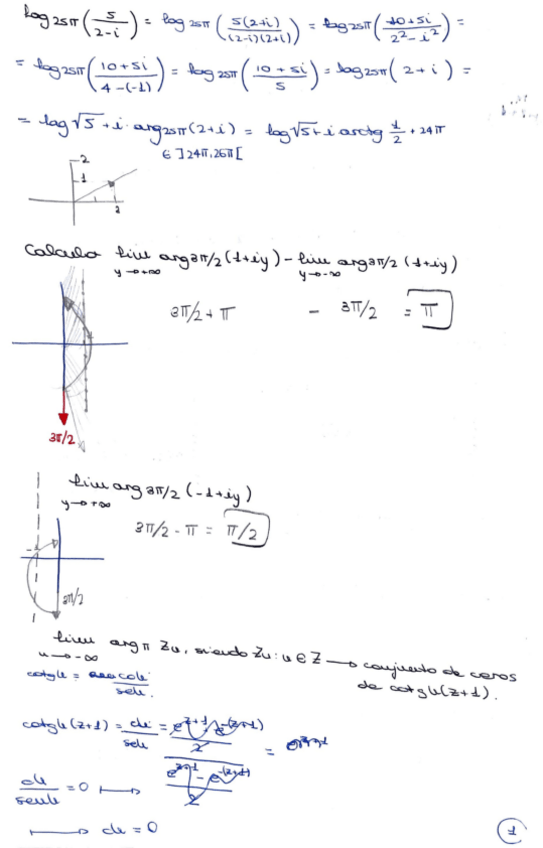 log25π(5/2-i) = log25π(5(2+i)/(2-i)(2+i)) = log25π(10+5i/2²-i²) =
= log25π(10+5i/4-(-1)) = log25π(10+5i/5) = log25π(2+i) =
= log√5 + i arg25π(2+i) = log√5 + i arctg 1/2 + 24π
∈ ]24π, 26π[
2
1
2
Calcula lim y→+∞ arg3π/2(1+iy) - lim y→-∞ arg3π/2(1+iy)
3π/2 + π - 3π/2 = π
3π/2
lim y→+∞ arg3π/2(-1+iy)
3π/2 - π = π/2
-1
3π/2
lim n→-∞ argπ Zn, siendo Zn: n∈Z → conjunto de ceros
de cotgh(z+1).
cotgh = cosh/senh.
cotgh(z+1) = ch/senh = e^(z+1) e^-(z+1)/2 / e^(z+1) - e^-(z+1)/2 =
ch/senh = 0 ↦
↦ ch = 0
1